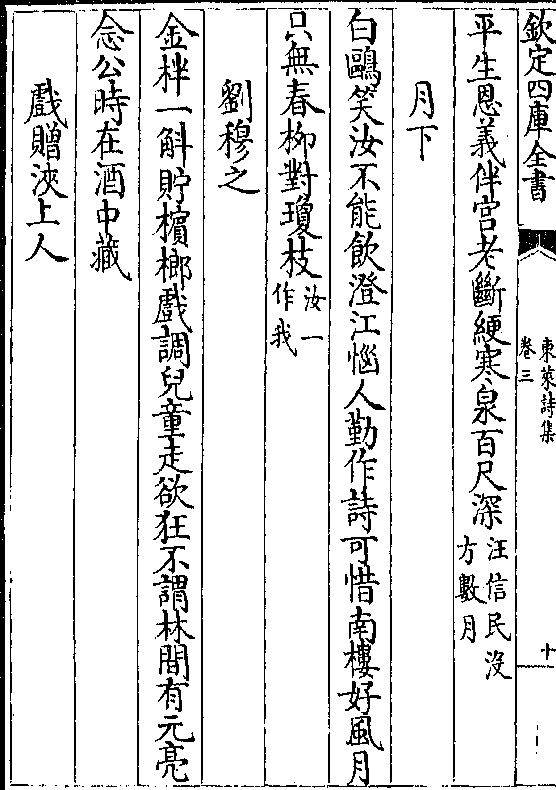 欽定四庫全書
東萊詩集
卷三
十
平生恩義伴宫老斷綆寒泉百尺深汪信民没
方數月
月下
白鷗笑汝不能飲澄江惱人勤作詩可惜南樓好風月
只無春栁對瓊枝汝一
作我
劉穆之
金柈一斛貯檳榔戲調兒童走欲狂不謂林間有元亮
念公時在酒中藏
戲贈浹上人